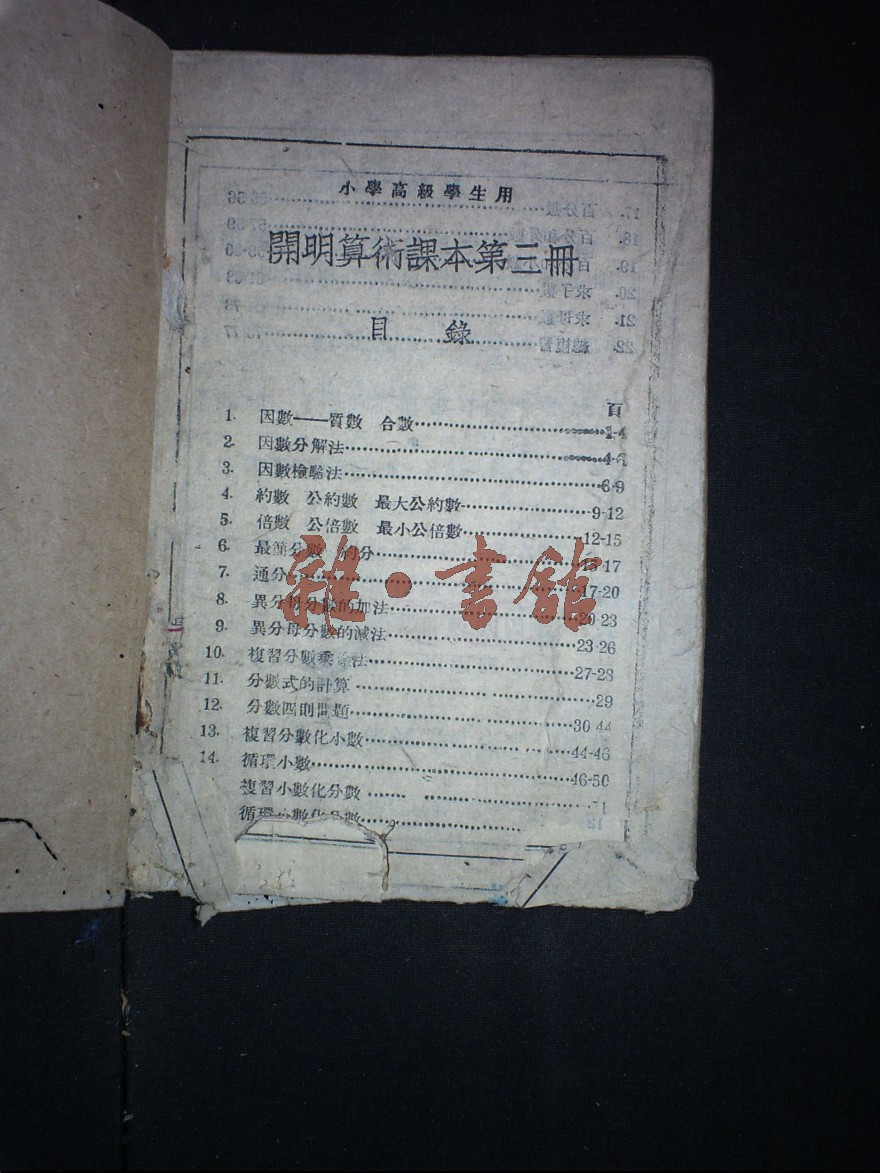 小學高級學生用
開明算術課本第三冊
目 錄
頁
1. 因數——質數 合數……1-4
2. 因數分解法……4-6
3. 因數檢驗法……6-9
4. 約數 公約數 最大公約數……9-12
5. 倍數 公倍數 最小公倍數……12-15
6. 最簡分數 約分……15-17
7. 通分……17-20
8. 異分母分數的加法……20-23
9. 異分母分數的減法……23-26
10. 複習分數乘除法……27-28
11. 分數式的計算……29
12. 分數四則問題……30-44
13. 複習分數化小數……44-46
14. 循環小數……46-50
複習小數化分數……
循環小數化分數……
雜·書館